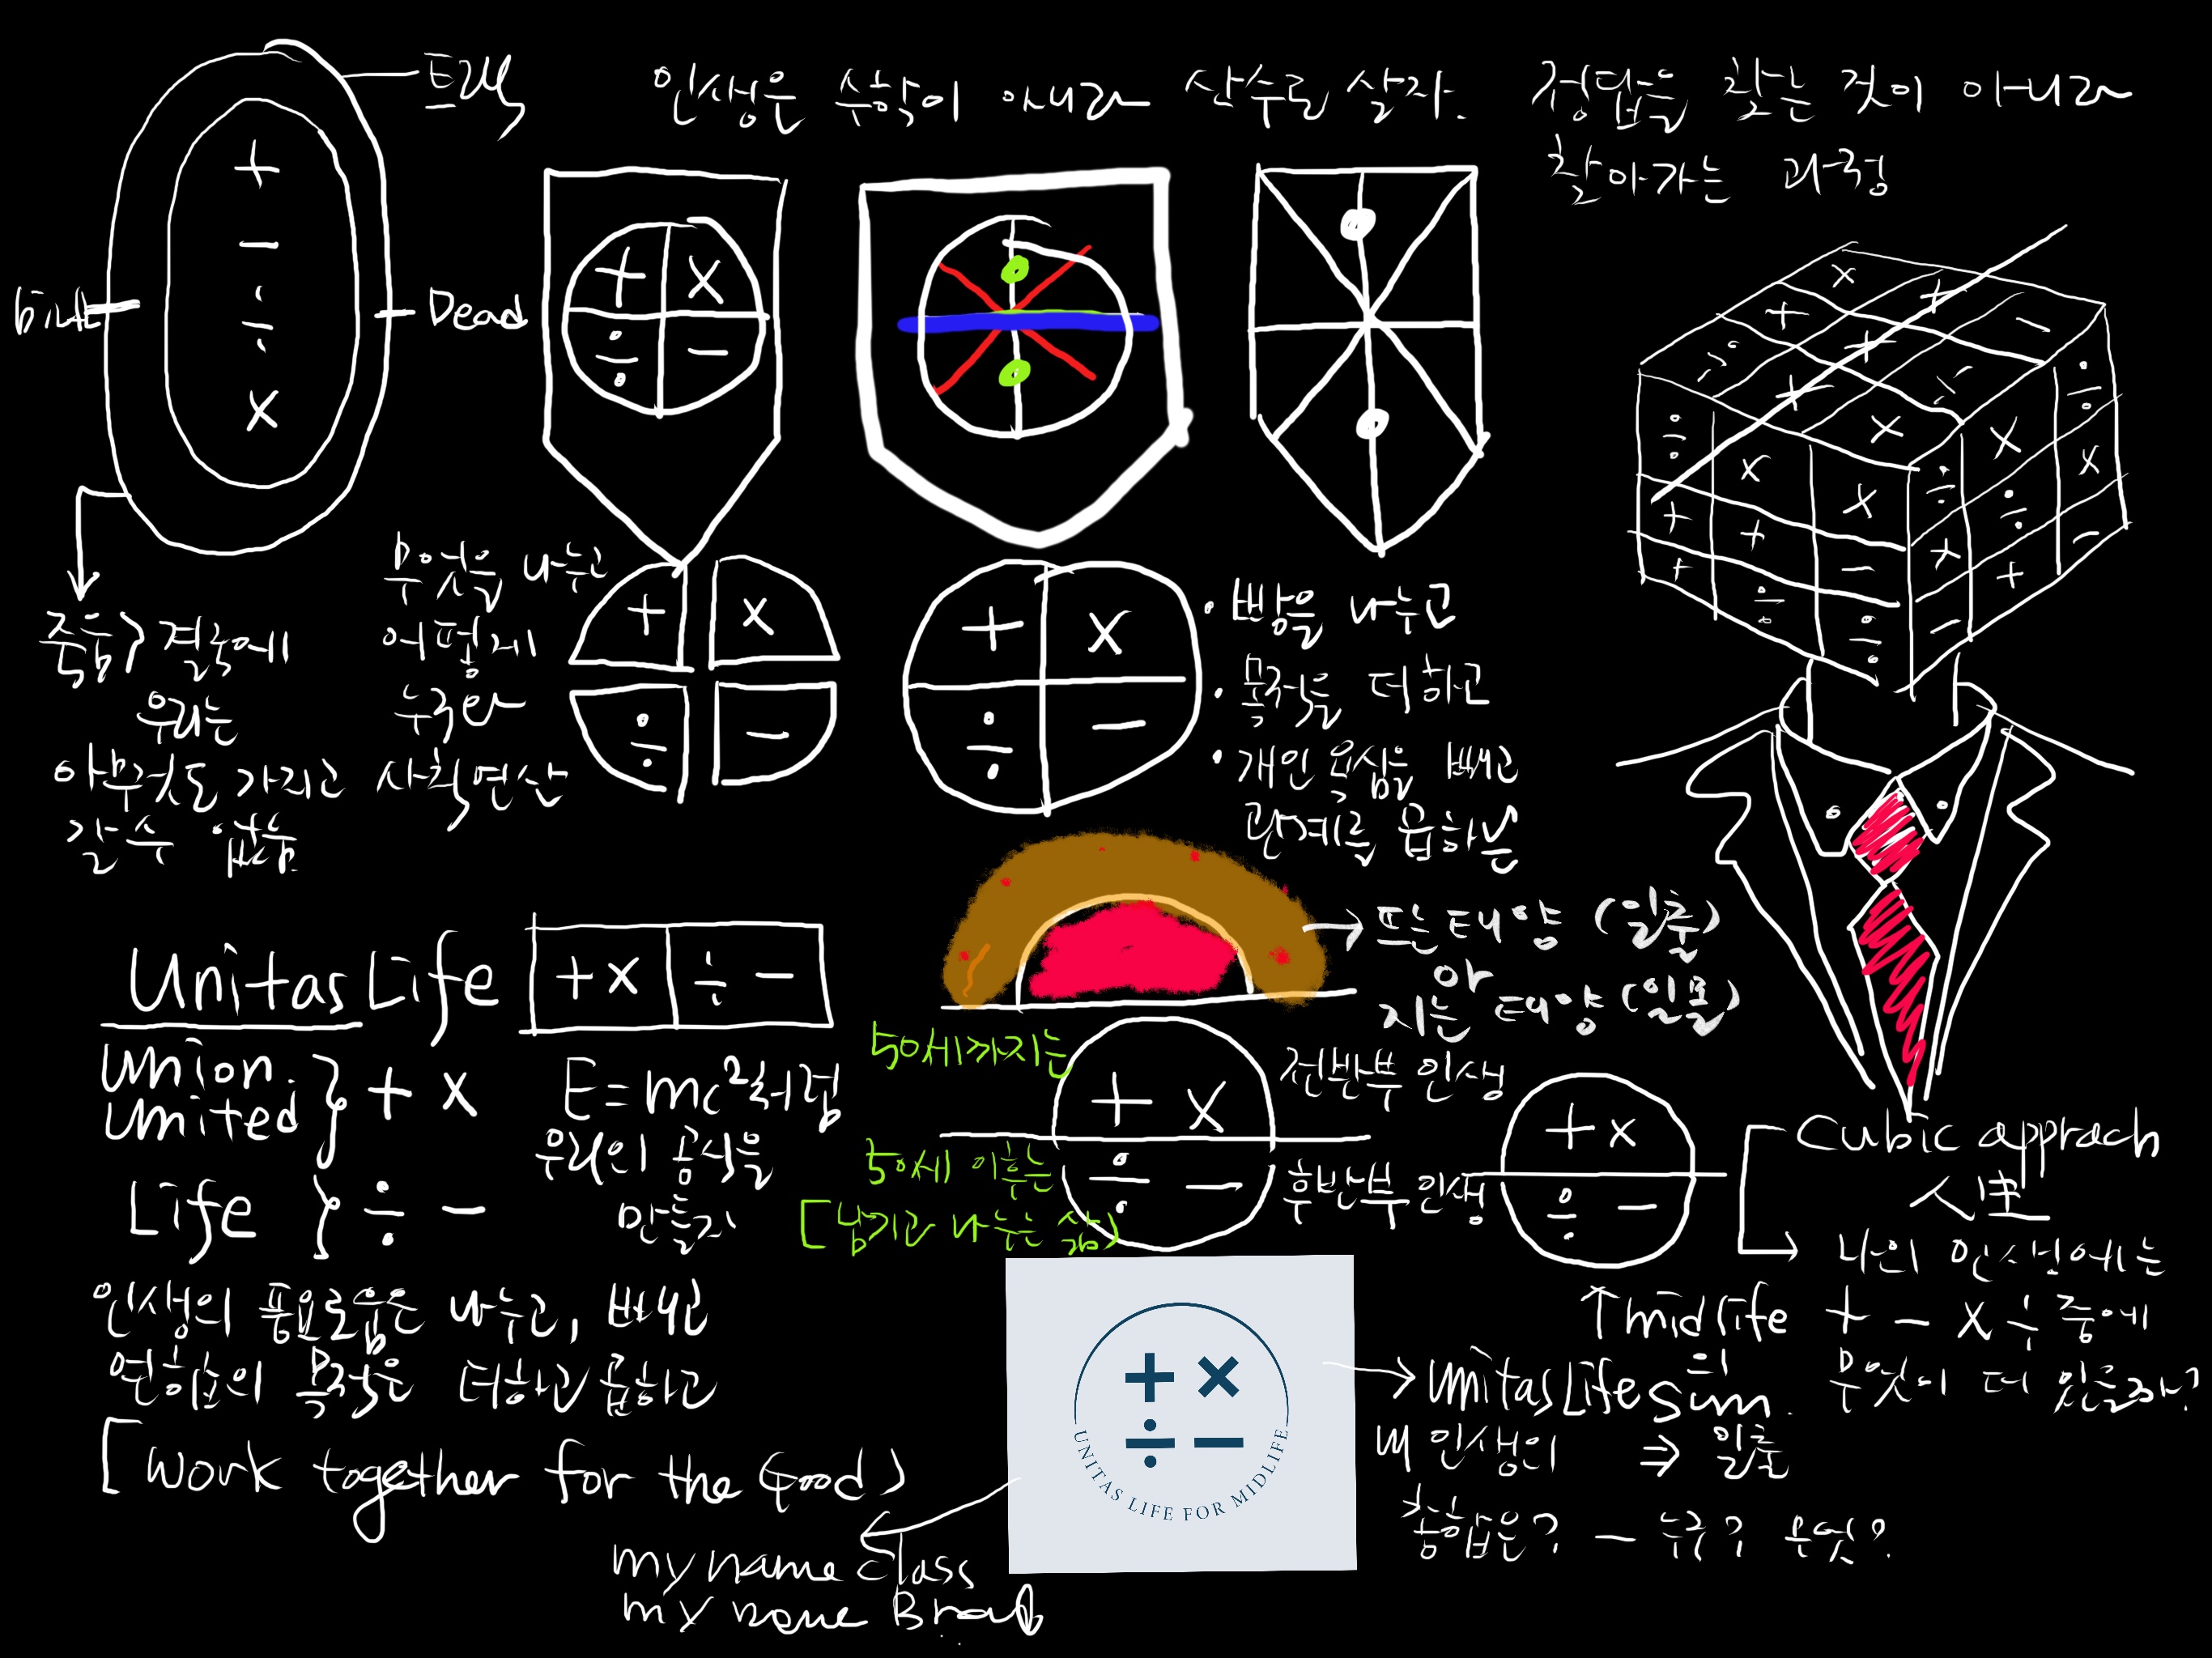 트랙
인생은 수학이 아니라 산수로 살자.
정답을 찾는 것이 아니라
찾아가는 과정
+
−
÷
×
Dead
+ ×
÷ −
무엇을 나누고
어떻게
누구와
사칙연산
죽음? 결국에
우리는
아무것도 가지고
갈 수 없음.
+ ×
÷ −
+ ×
÷ −
· 빵을 나누고
· 목적을 더하고
· 개인 욕심을 빼고
관계를 곱하는
→ 뜨는 태양 (일출)
아
지는 태양 (일몰)
Unitas Life + × ÷ −
union.
united } + ×
Life } ÷ −
E=mc²처럼
우리의 공식을
만들자
50세까지는
+ × 전반부 인생
50세 이후는
÷ − 후반부 인생
[남기고 나누는 삶)
+ ×
÷ −
↑midlife
Cubic apprach
人生
나의 인생에는
+ − × ÷ 중에
무엇이 더 있을까?
인생의 풍요로움은 나누고, 빼고
연합의 목적은 더하고 곱하고
[Work together for the Good)
my name class
my name Brand
+ ×
÷ −
UNITAS LIFE FOR MIDLIFE
→ UnitasLife의 sum.
내 인생의 ⇒ 일출
총합은? − 누구? 무엇?